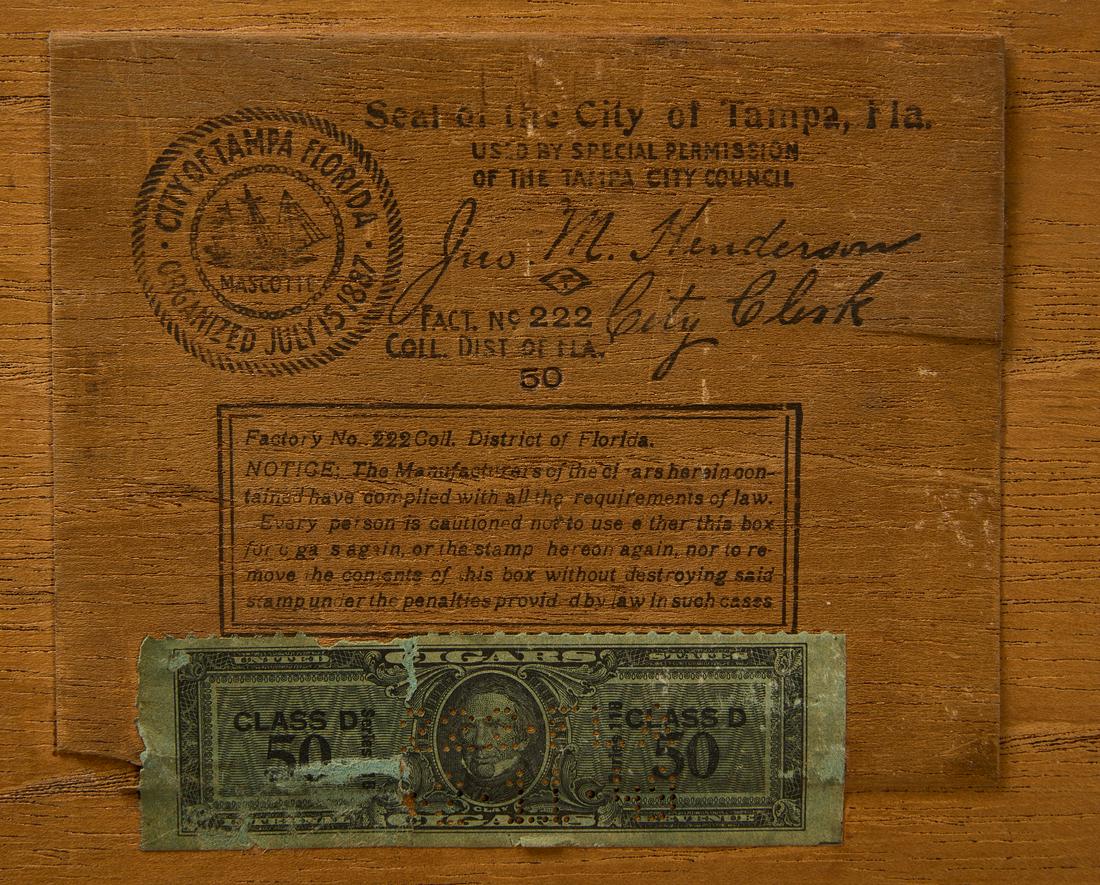 Seal of the City of Tampa, Fla.
USED BY SPECIAL PERMISSION
OF THE TAMPA CITY COUNCIL
CITY OF TAMPA FLORIDA
ORGANIZED JULY 15 1887
MASCOTTE
Jno. M. Henderson
City Clerk
FACT. No 222
COLL. DIST OF FLA.
50
Factory No. 222 Coll. District of Florida.
NOTICE: The Manufacturers of the cigars herein con-
tained have complied with all the requirements of law.
Every person is cautioned not to use either this box
for cigars again, or the stamp hereon again, nor to re-
move the contents of this box without destroying said
stamp under the penalties provided by law in such cases
UNITED CIGARS STATES
CLASS D
50
Series
CLASS D
50
Series
CLAY
INTERNAL CIGARS REVENUE